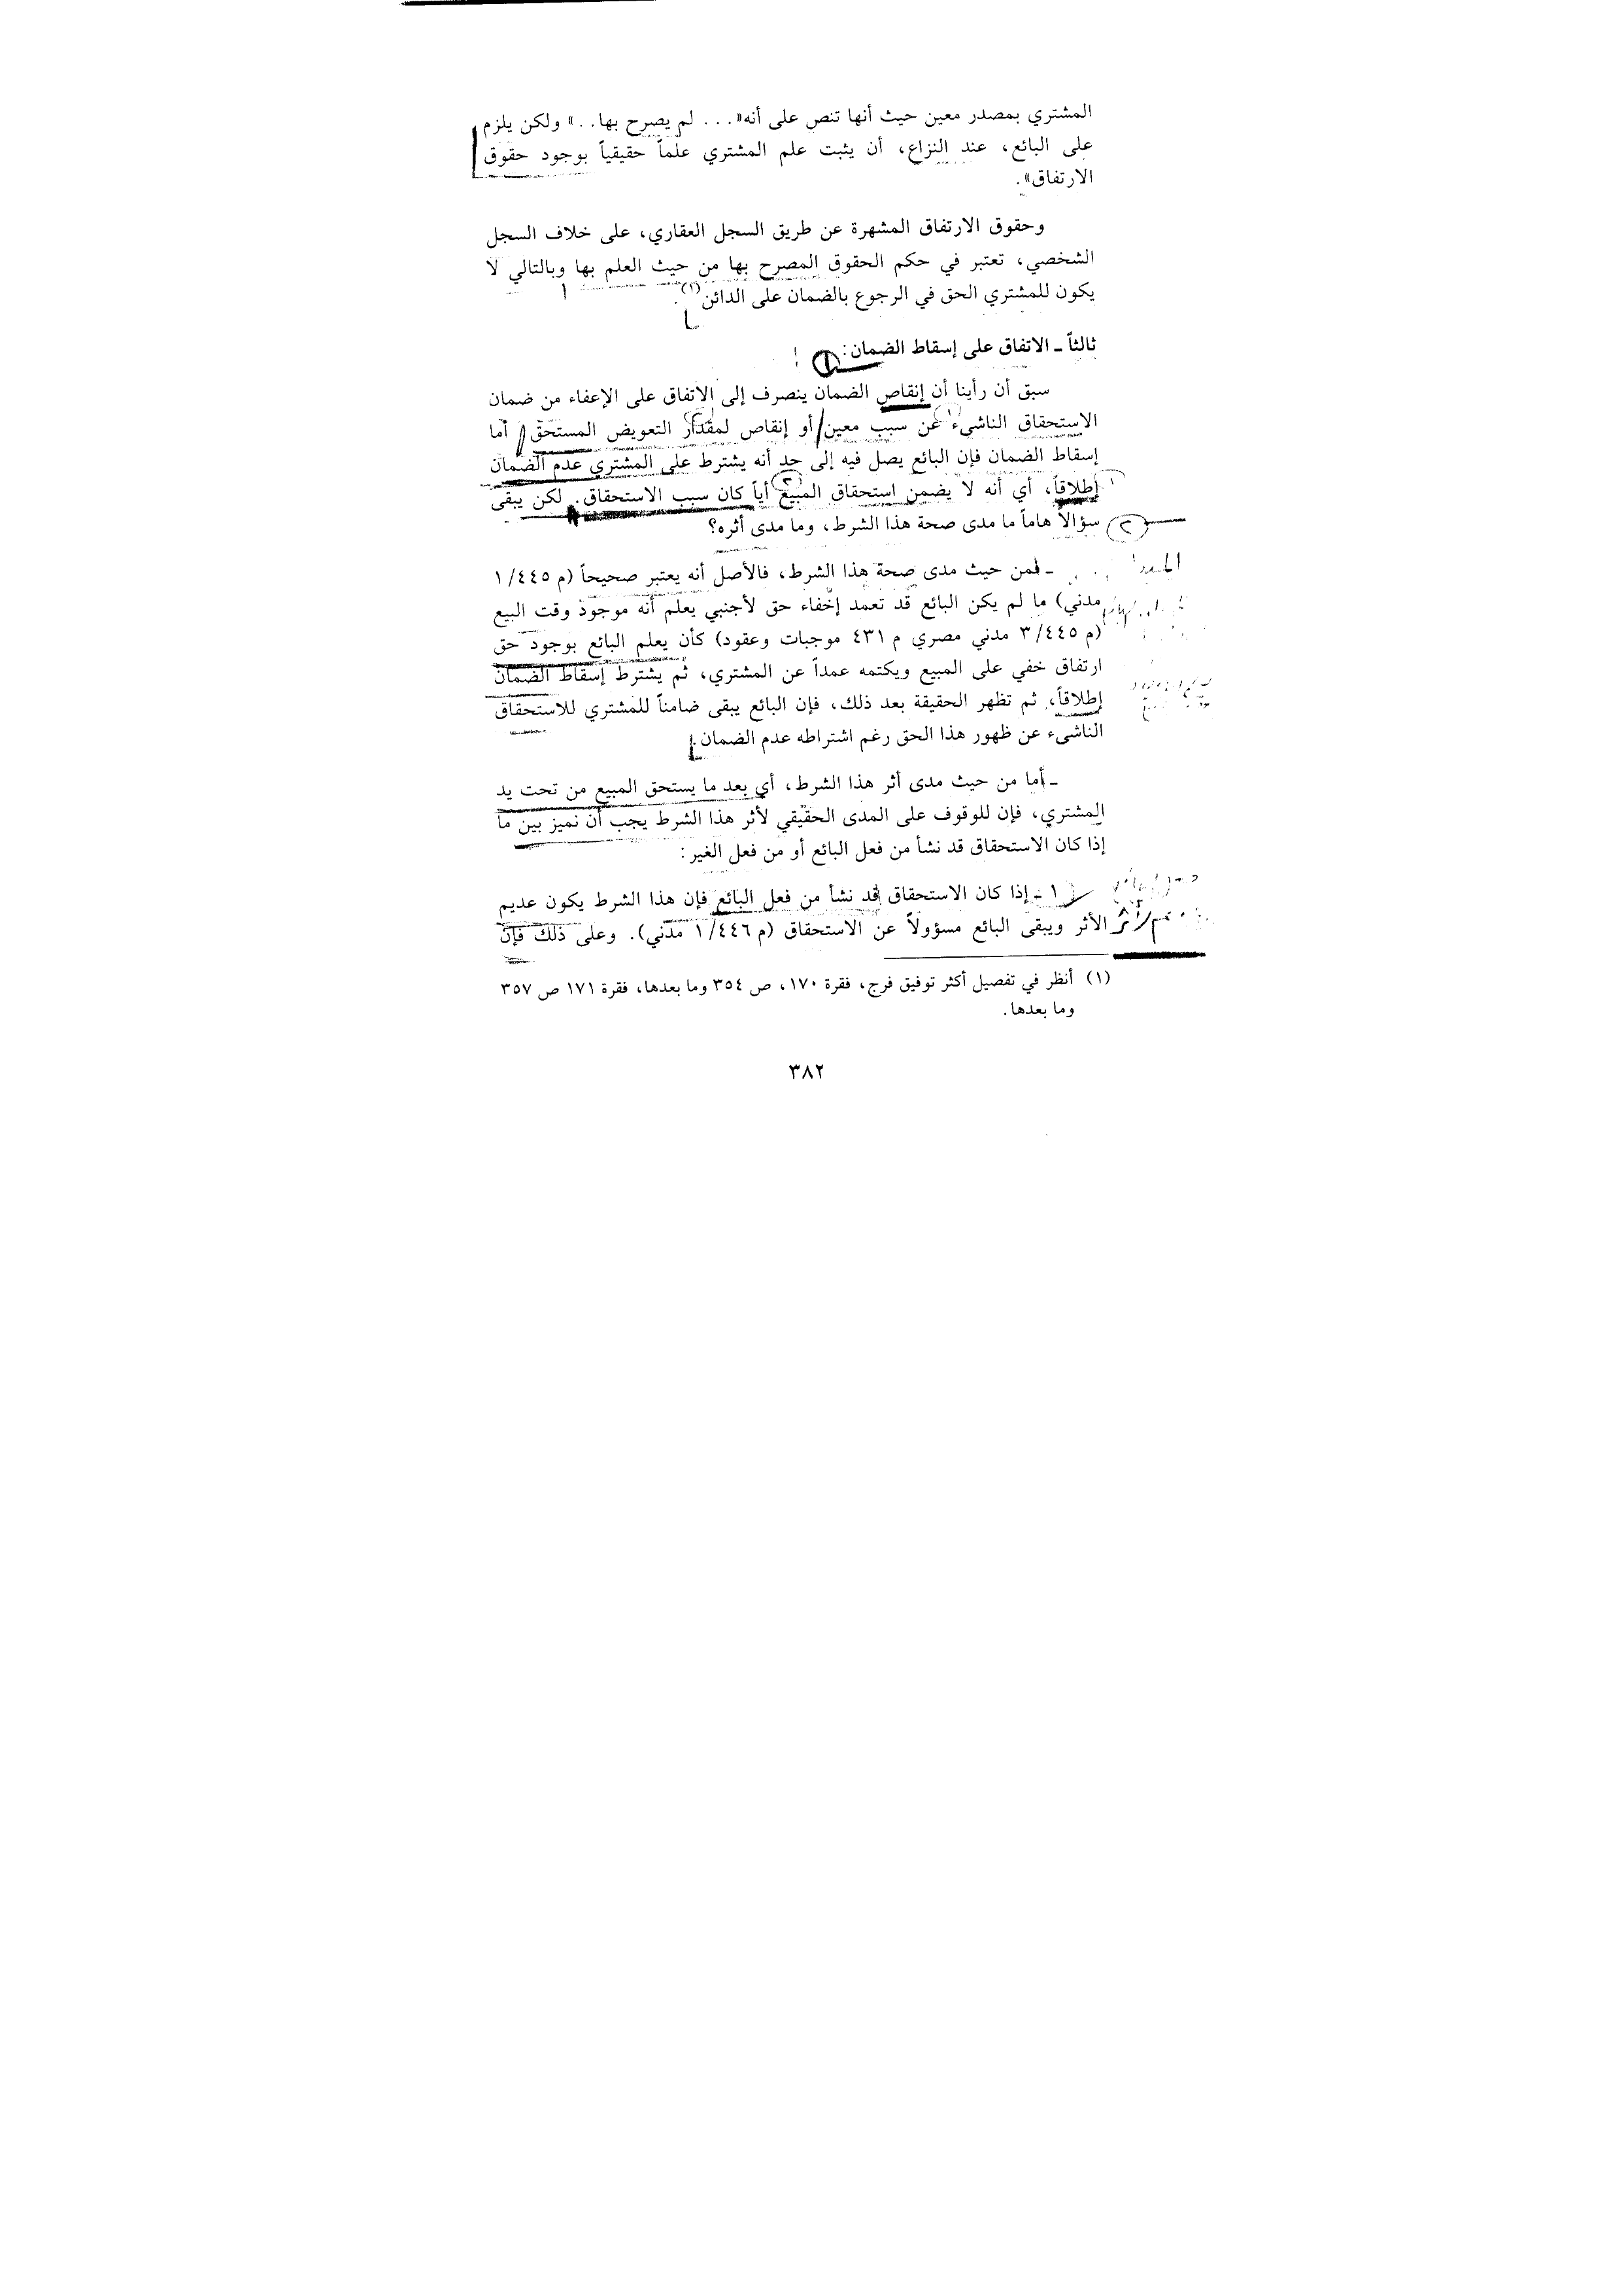 المشتري بمصدر معين حيث أنها تنص على أنه «... لم يصرح بها..» ولكن يلزم
على البائع، عند النزاع، أن يثبت علم المشتري علماً حقيقياً بوجود حقوق
الارتفاق».
وحقوق الارتفاق المشهرة عن طريق السجل العقاري، على خلاف السجل
الشخصي، تعتبر في حكم الحقوق المصرح بها من حيث العلم بها وبالتالي لا
يكون للمشتري الحق في الرجوع بالضمان على الدائن(١).
ثالثاً ـ الاتفاق على إسقاط الضمان:
سبق أن رأينا أن إنقاص الضمان ينصرف إلى الاتفاق على الإعفاء من ضمان
الاستحقاق الناشىء عن سبب معين أو إنقاص لمقدار التعويض المستحق أما
إسقاط الضمان فإن البائع يصل فيه إلى حد أنه يشترط على المشتري عدم الضمان
إطلاقاً، أي أنه لا يضمن استحقاق المبيع أياً كان سبب الاستحقاق. لكن يبقى
سؤالاً هاماً ما مدى صحة هذا الشرط، وما مدى أثره؟
ـ فمن حيث مدى صحة هذا الشرط، فالأصل أنه يعتبر صحيحاً (م ١/٤٤٥
مدني) ما لم يكن البائع قد تعمد إخفاء حق لأجنبي يعلم أنه موجود وقت البيع
(م ٣/٤٤٥ مدني مصري م ٤٣١ موجبات وعقود) كأن يعلم البائع بوجود حق
ارتفاق خفي على المبيع ويكتمه عمداً عن المشتري، ثم يشترط إسقاط الضمان
إطلاقاً، ثم تظهر الحقيقة بعد ذلك، فإن البائع يبقى ضامناً للمشتري للاستحقاق
الناشىء عن ظهور هذا الحق رغم اشتراطه عدم الضمان.
ـ أما من حيث مدى أثر هذا الشرط، أي بعد ما يستحق المبيع من تحت يد
المشتري، فإن للوقوف على المدى الحقيقي لأثر هذا الشرط يجب أن نميز بين ما
إذا كان الاستحقاق قد نشأ من فعل البائع أو من فعل الغير:
١ ـ إذا كان الاستحقاق قد نشأ من فعل البائع فإن هذا الشرط يكون عديم
الأثر ويبقى البائع مسؤولاً عن الاستحقاق (م ١/٤٤٦ مدني). وعلى ذلك فإن
(١) أنظر في تفصيل أكثر توفيق فرج، فقرة ١٧٠، ص ٣٥٤ وما بعدها، فقرة ١٧١ ص ٣٥٧
وما بعدها.
٣٨٢